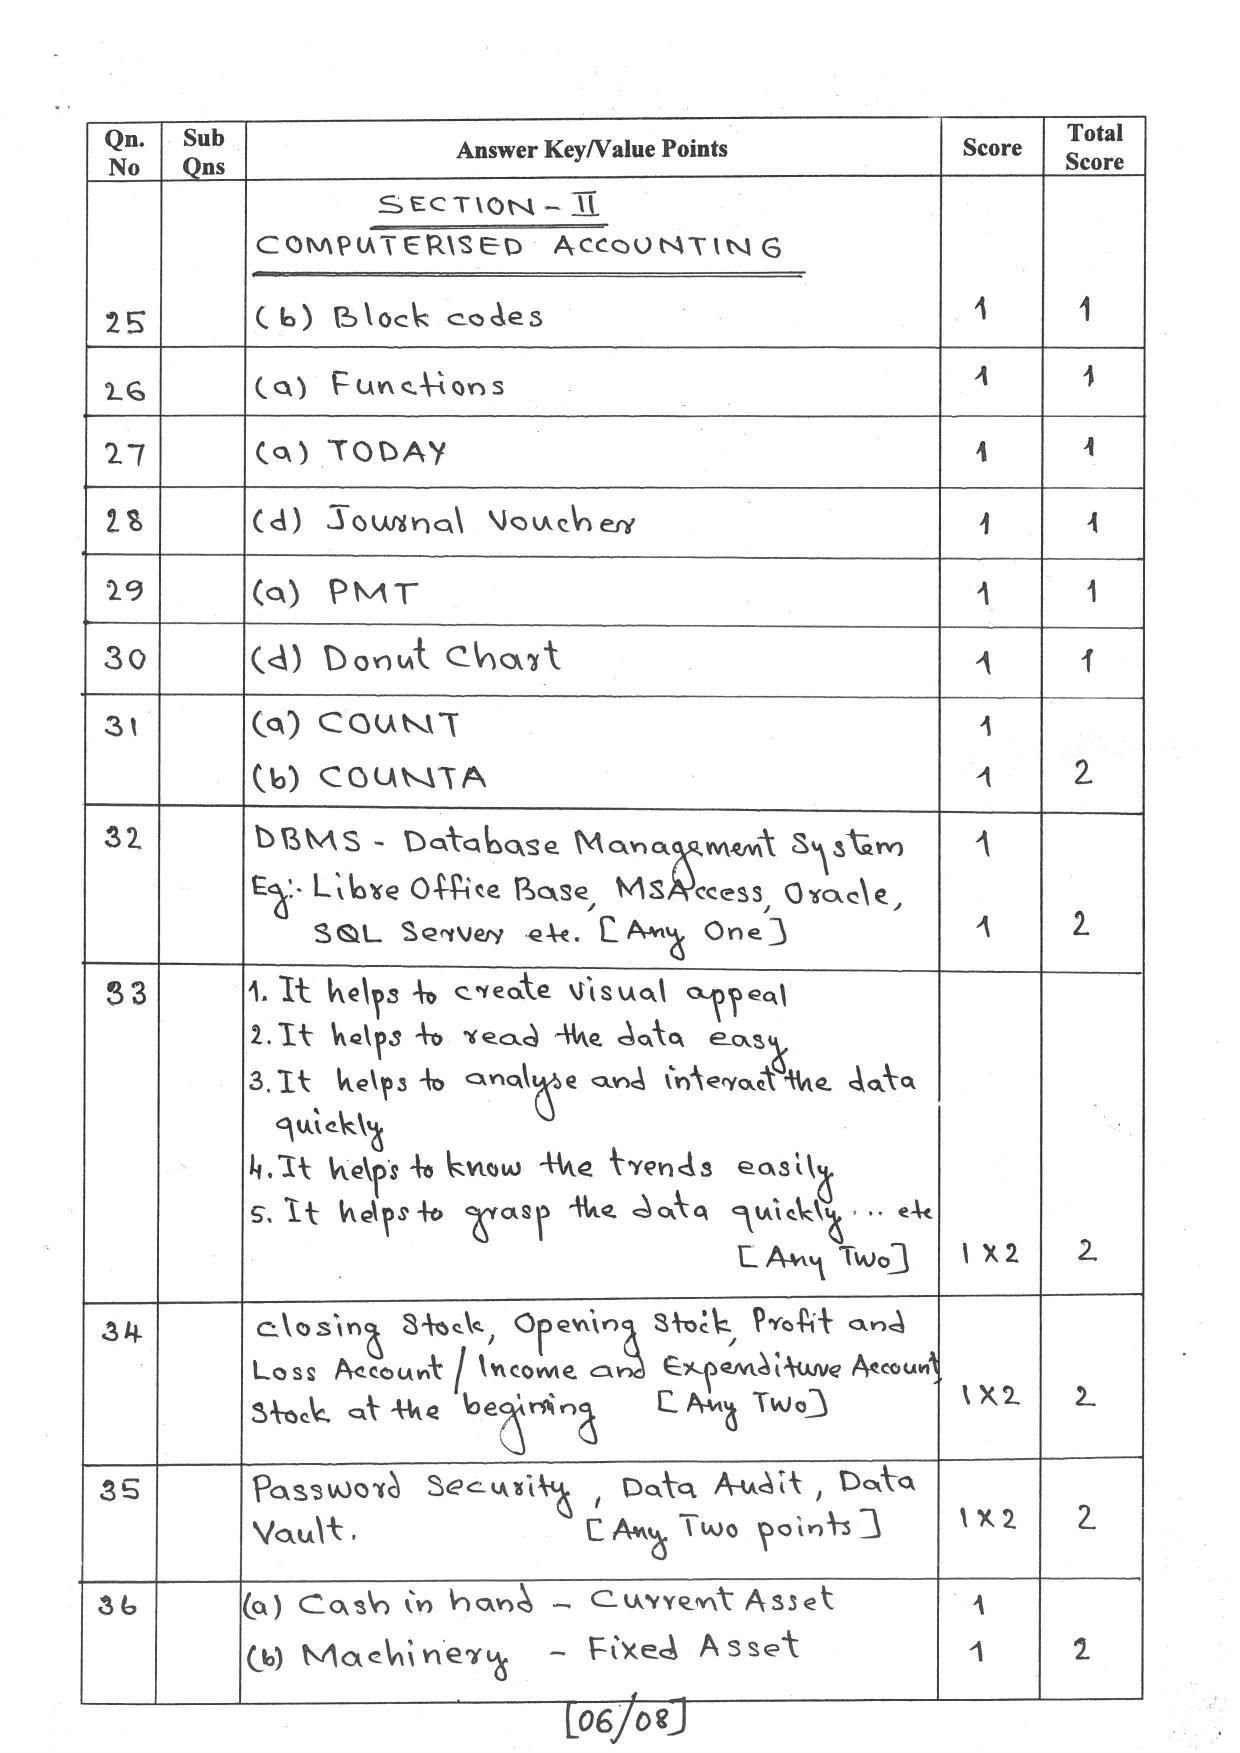 Qn. No Sub Qns Answer Key/Value Points Score Total Score
SECTION - II
COMPUTERISED ACCOUNTING
25 (b) Block codes 1 1
26 (a) Functions 1 1
27 (a) TODAY 1 1
28 (d) Journal Voucher 1 1
29 (a) PMT 1 1
30 (d) Donut Chart 1 1
31 (a) COUNT 1
(b) COUNTA 1 2
32 DBMS - Database Management System 1
Eg:- Libre Office Base, MSAccess, Oracle,
SQL Server etc. [Any One] 1 2
33 1. It helps to create visual appeal
2. It helps to read the data easy
3. It helps to analyse and interact the data
quickly
4. It helps to know the trends easily
5. It helps to grasp the data quickly ... etc
[Any Two] 1 X 2 2
34 Closing Stock, Opening Stock, Profit and
Loss Account / Income and Expenditure Account
Stock at the begining [Any Two] 1 X 2 2
35 Password Security, Data Audit, Data
Vault. [Any Two points] 1 X 2 2
36 (a) Cash in hand - Current Asset 1
(b) Machinery - Fixed Asset 1 2
[06/08]